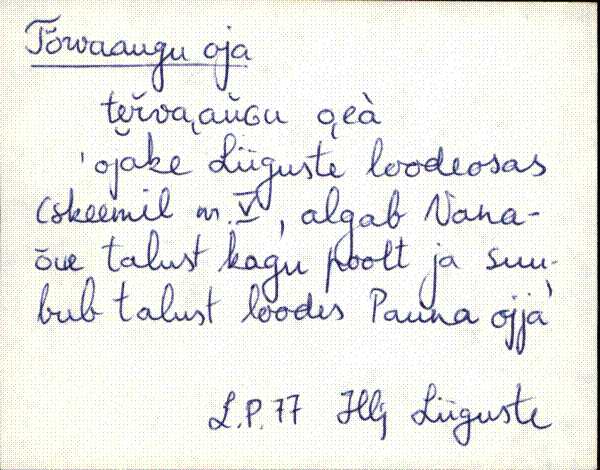 Tõrvaaugu oja
tɐ̆rva͔ăŭɢu o̬ɐà
'ojake Liiguste loodeosas
(skeemil nr. V), algab Vana-
õue talust kagu poolt ja suu-
bub talust loodes Pauna ojja'
L.P. 77 Hlj Liiguste